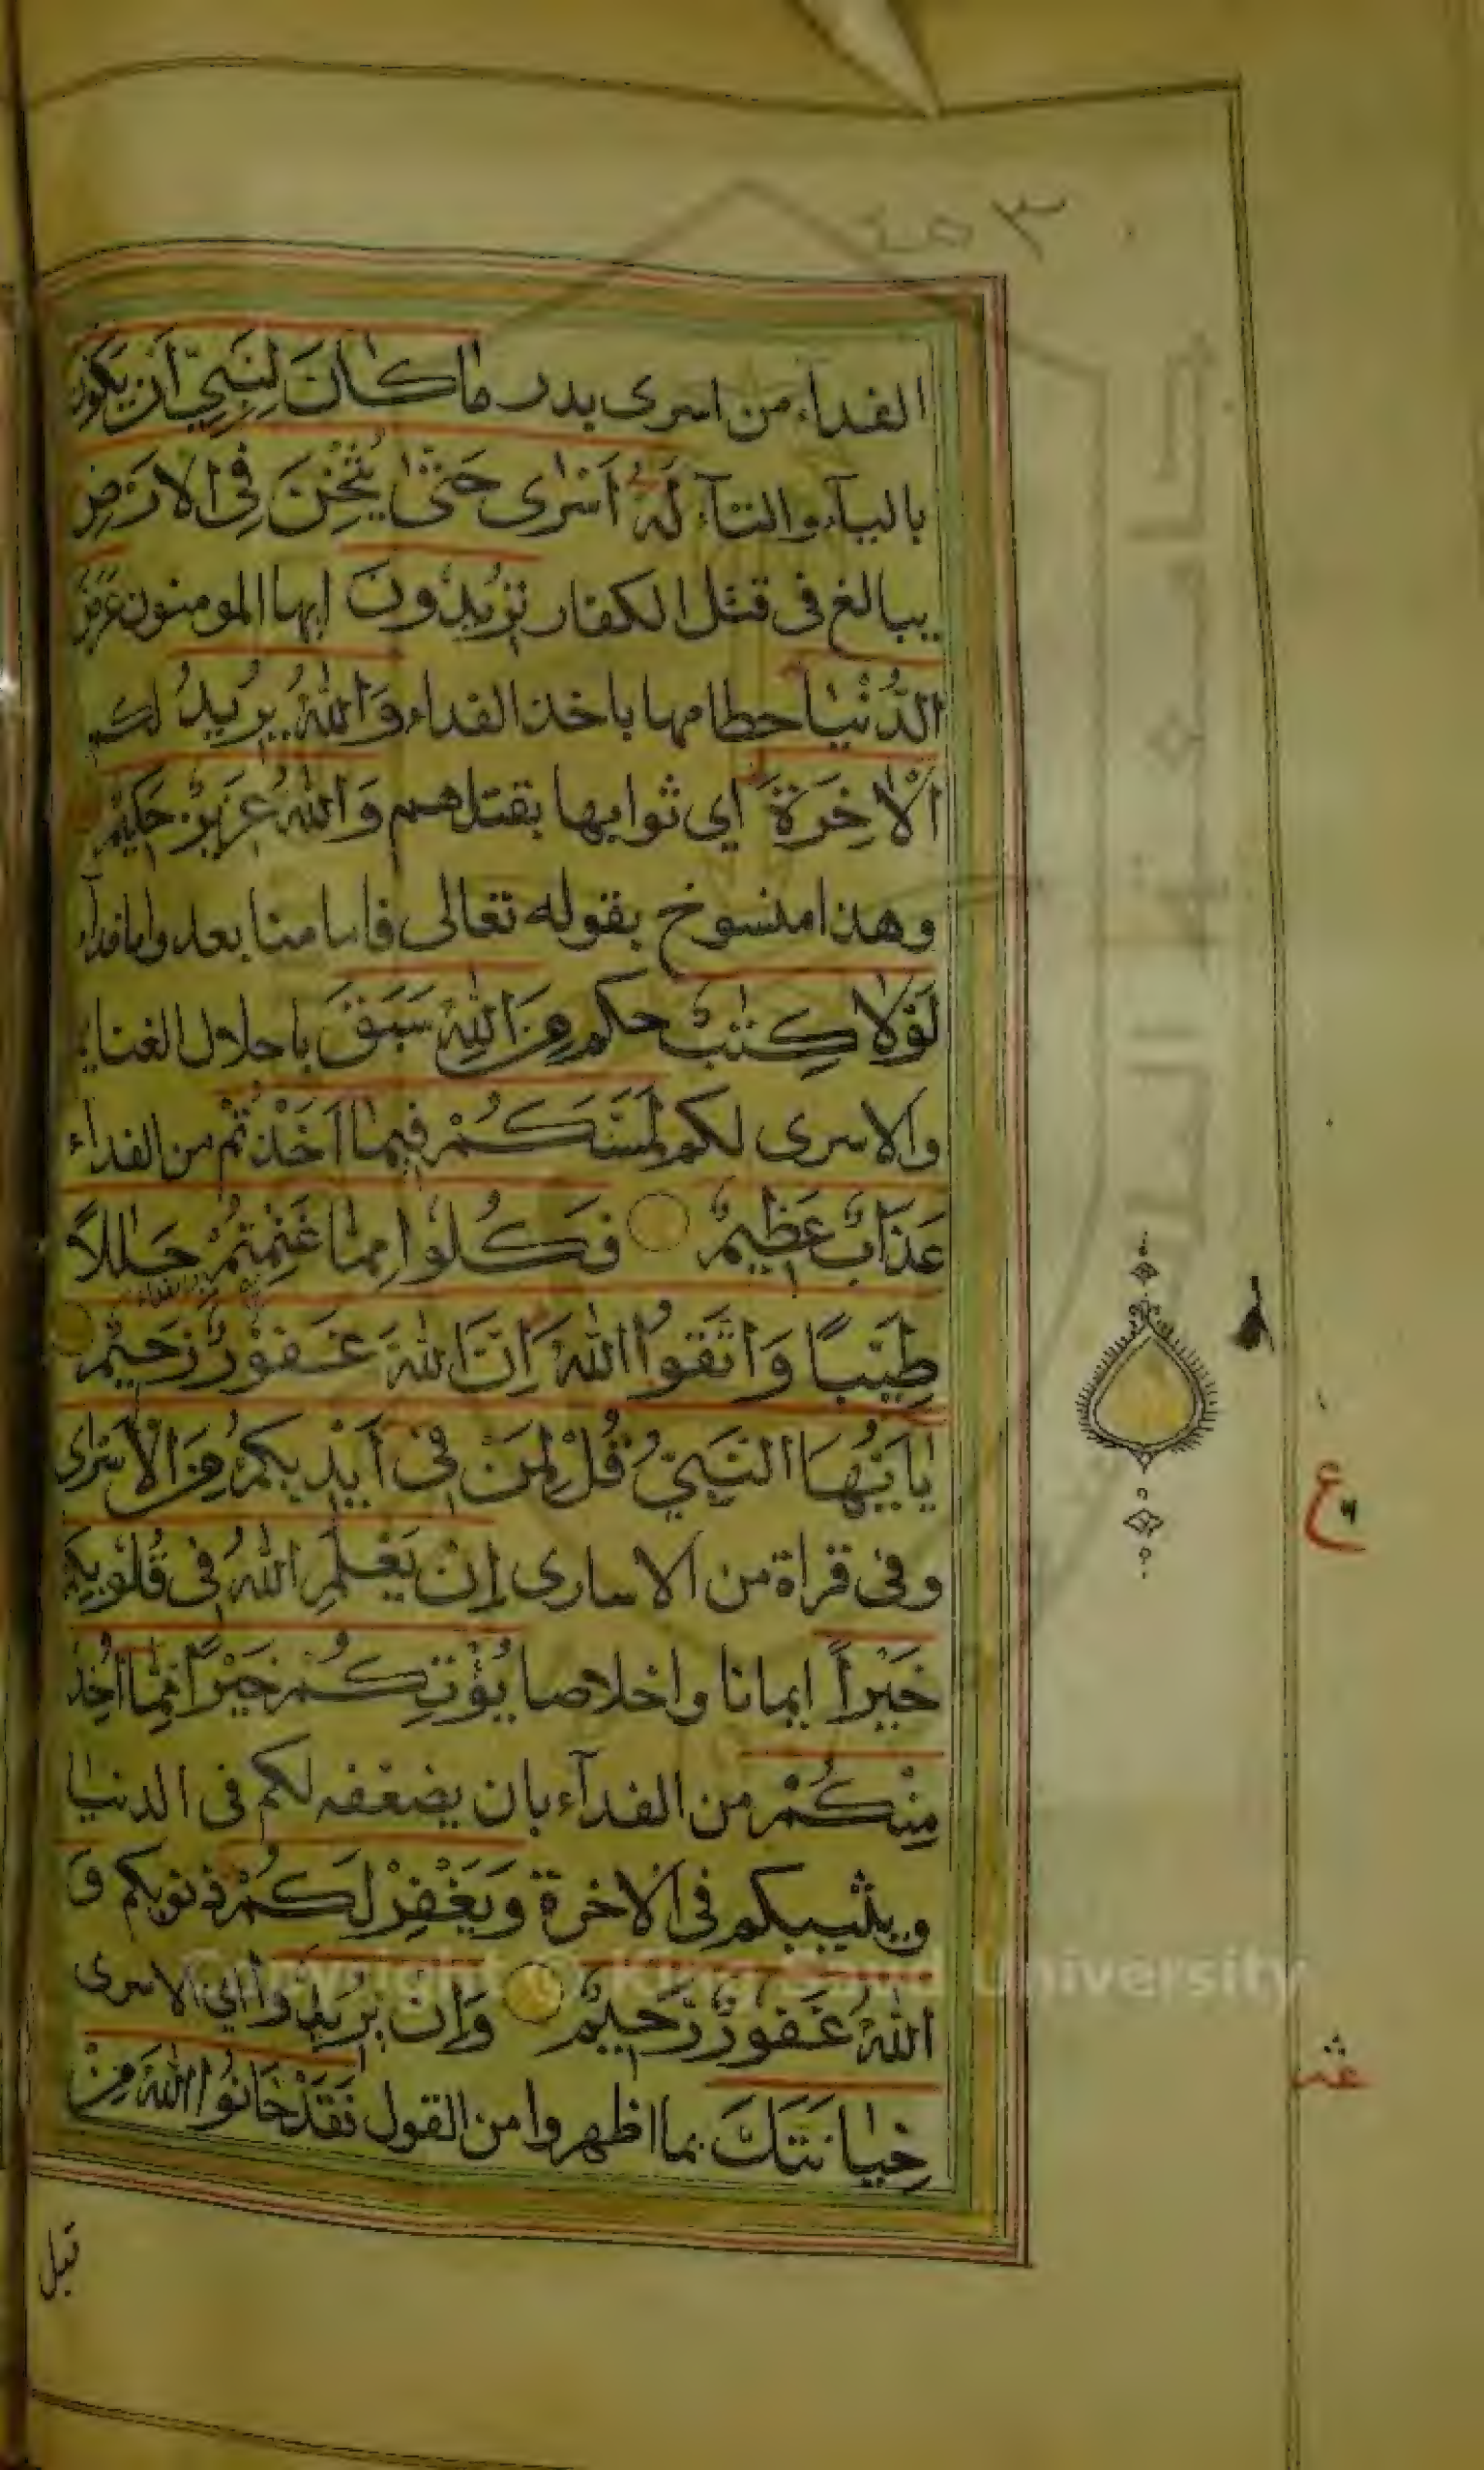 ٣ صـ
الفداء من اسرى بدر مَا كَانَ لِنَبِيٍّ اَنْ يَكُونَ
بالياء والتاء لَهُ اَسْرٰى حَتّٰى يُثْخِنَ فِى الْاَرْضِ
يبالغ فى قتل الكفار تُرِيدُونَ ايها المومنون عَرَضَ
الدُّنْيَا حطامها باخذ الفداء وَاللّٰهُ يُرِيدُ لكم
الْاٰخِرَةَ اى ثوابها بقتلهم وَاللّٰهُ عَزِيزٌ حَكِيمٌ
وهذا منسوخ بقوله تعالى فاما منا بعد واما فداء
لَوْلَا كِتٰبٌ حكم مِنَ اللّٰهِ سَبَقَ باحلال الغنايم
والاسرى لكم لَمَسَّكُمْ فِيمَا اَخَذْتُمْ من الفداء
عَذَابٌ عَظِيمٌ فَكُلُوا مِمَّا غَنِمْتُمْ حَلٰلًا
طَيِّبًا وَاتَّقُوا اللّٰهَ اِنَّ اللّٰهَ غَفُورٌ رَحِيمٌ
يٰاَيُّهَا النَّبِيُّ قُلْ لِمَنْ فِى اَيْدِيكُمْ مِنَ الْاَسْرٰى
وفى قراة من الاسارى اِنْ يَعْلَمِ اللّٰهُ فِى قُلُوبِكُمْ
خَيْرًا ايمانا واخلاصا يُؤْتِكُمْ خَيْرًا مِمَّا اُخِذَ
مِنْكُمْ من الفدآء بان يضعفه لكم فى الدنيا
ويثيبكم فى الاخرة وَيَغْفِرْ لَكُمْ ذنوبكم وَ
اللّٰهُ غَفُورٌ رَحِيمٌ وَاِنْ يُرِيدُوا اى الاسرى
خِيَانَتَكَ بما اظهروا من القول فَقَدْ خَانُوا اللّٰهَ مِنْ
قبل
ع
عشر
Copyright © King Saud University